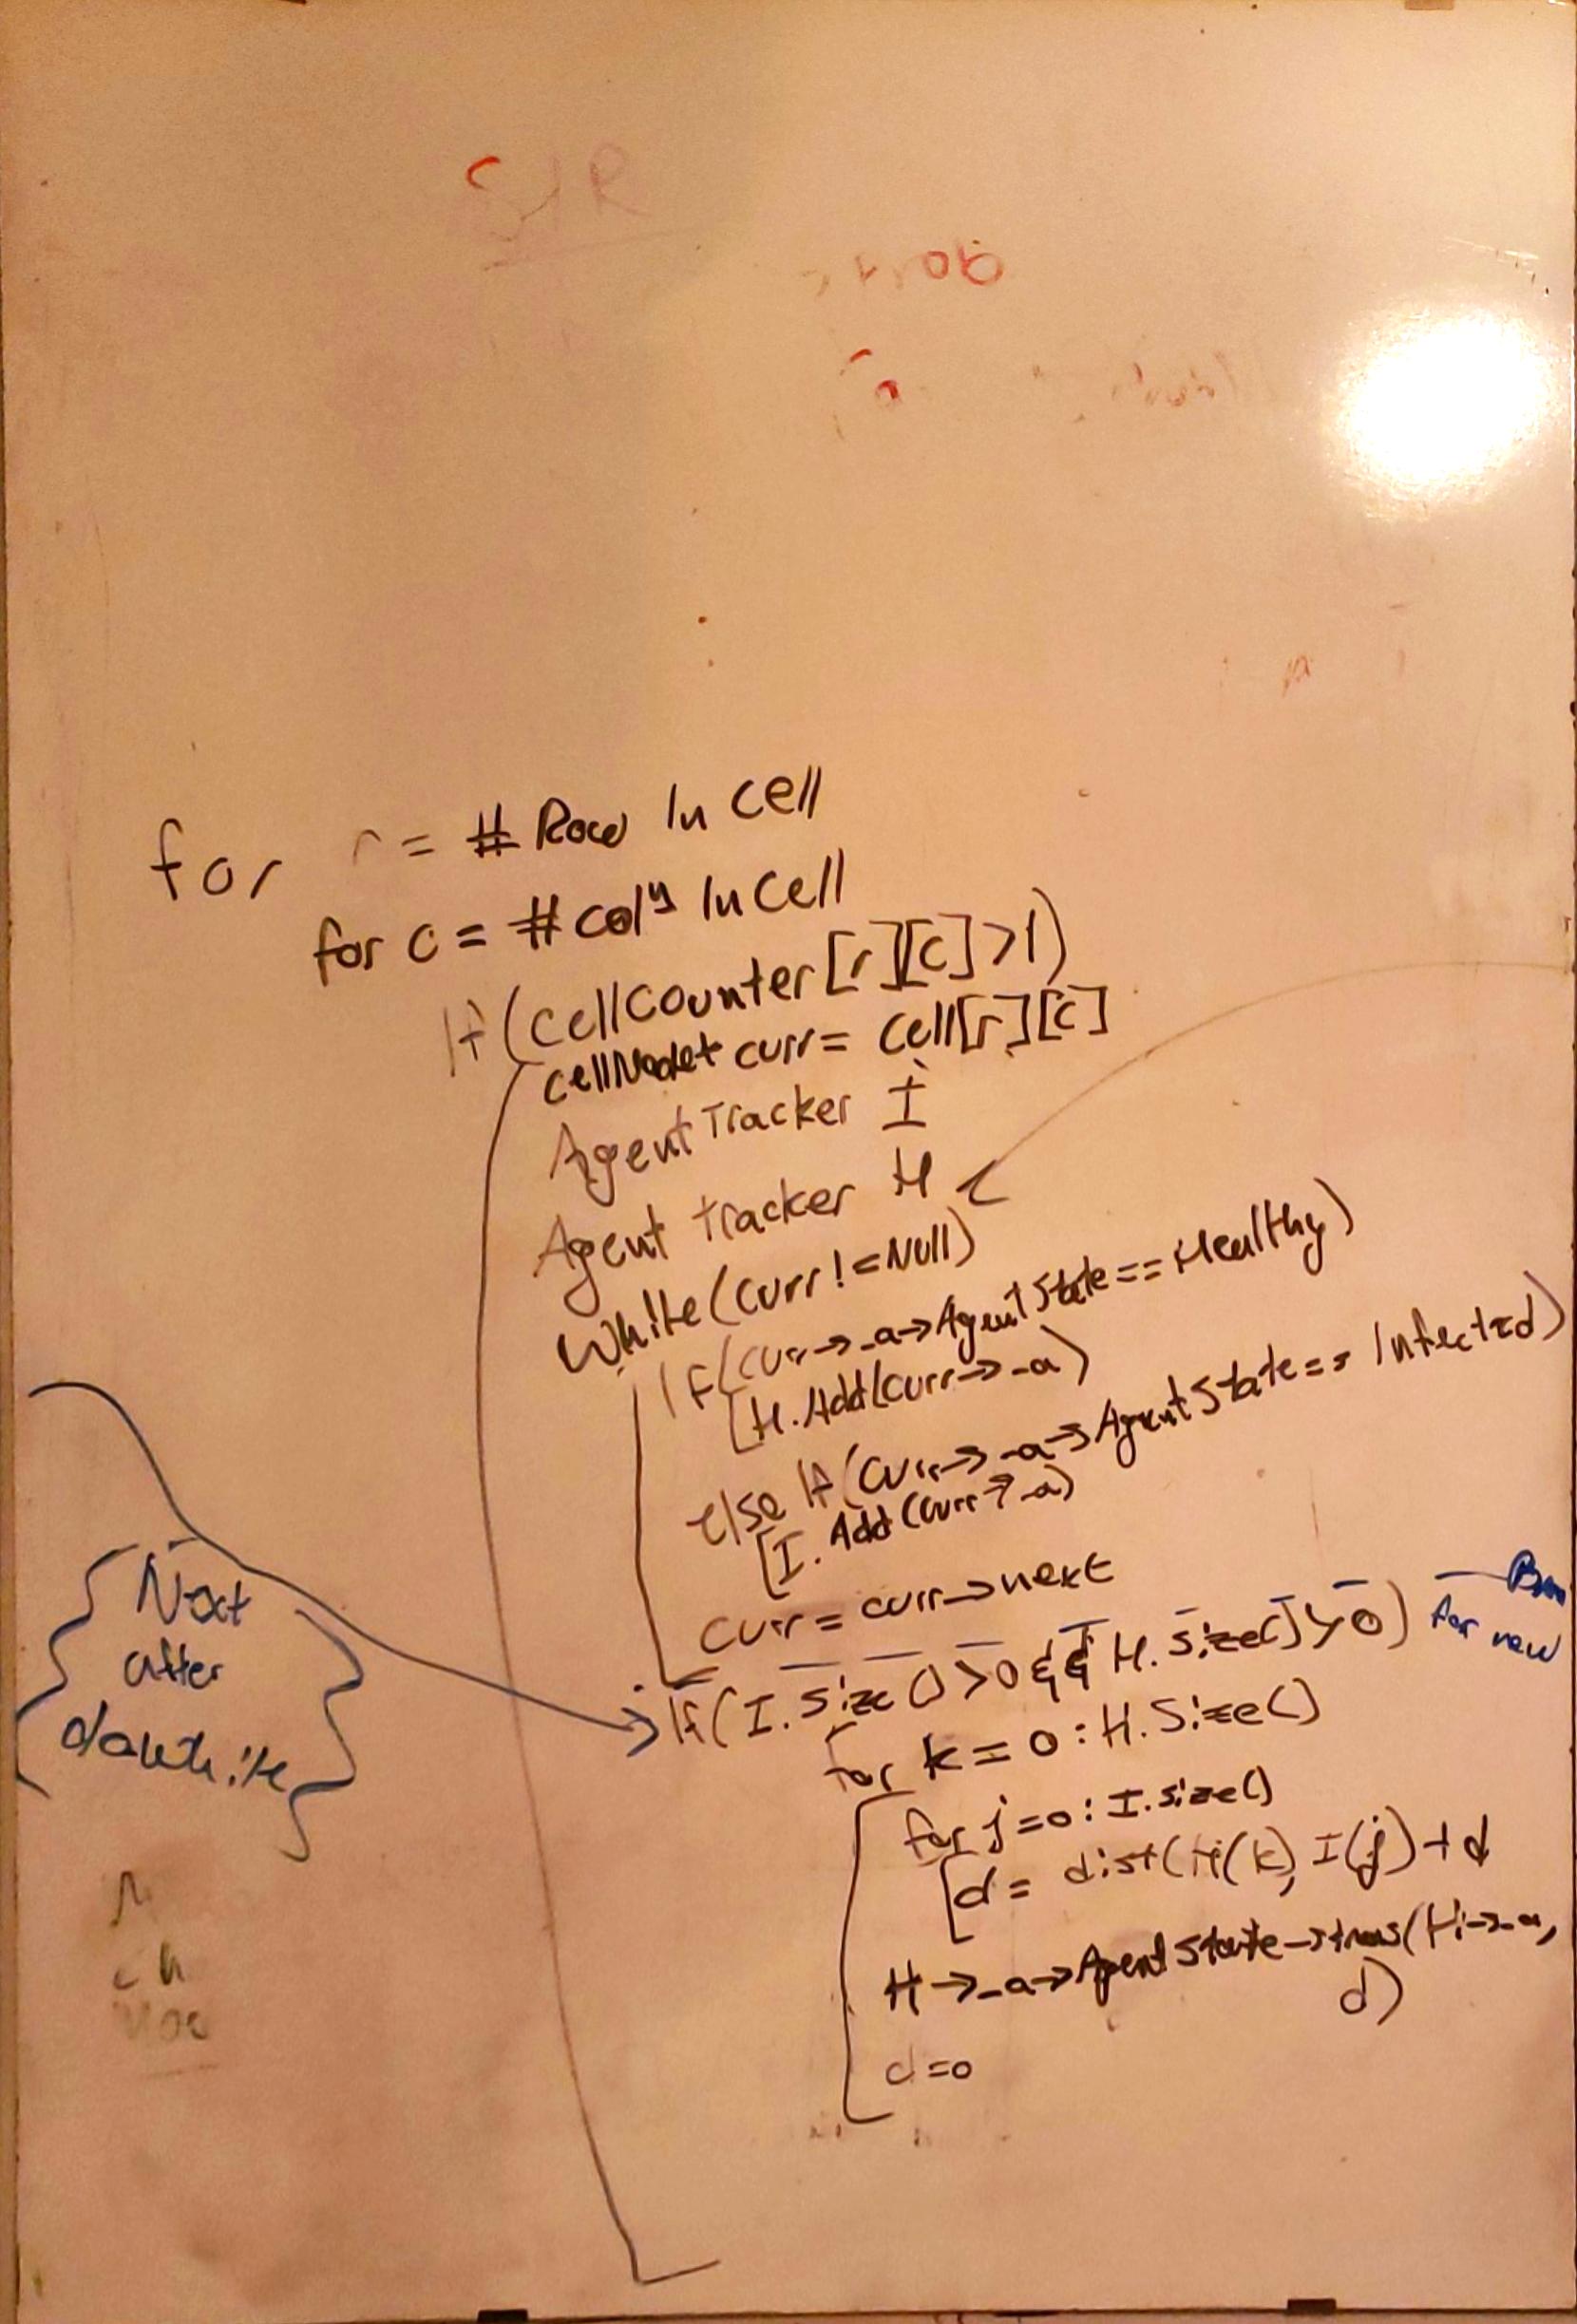 SIR
for r = # Row In Cell
for c = # Cols In Cell
If (CellCounter[r][c] > 1)
CellNode* curr = Cell[r][c]
AgentTracker I
Agent tracker H
While (curr != Null)
If (curr->_a->AgentState == Healthy)
H.Add(curr->_a)
else If (curr->_a->AgentState == Infected)
I.Add(curr->_a)
curr = curr->next
If (I.Size() > 0 && H.Size() > 0)
for new
for k = 0 : H.Size()
for j = 0 : I.size()
d = dist(H(k), I(j)) + d
H->_a->AgentState->trans(Hi->_a,
d)
d = 0
Next
after